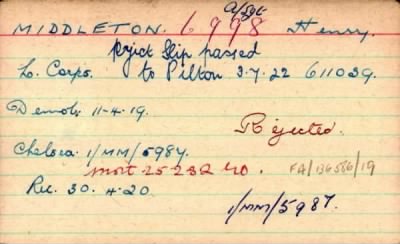 A/Sgt
MIDDLETON. 6998 Henry.
Reject Slip passed
L. Corps. to Pilton 3.7.22 611039.
Demob. 11-4.19.
Rejected.
Chelsea. 1/MM/5987.
mort 25232 40. FA/136586/19
Rec. 30. 4.20
1/MM/5987.